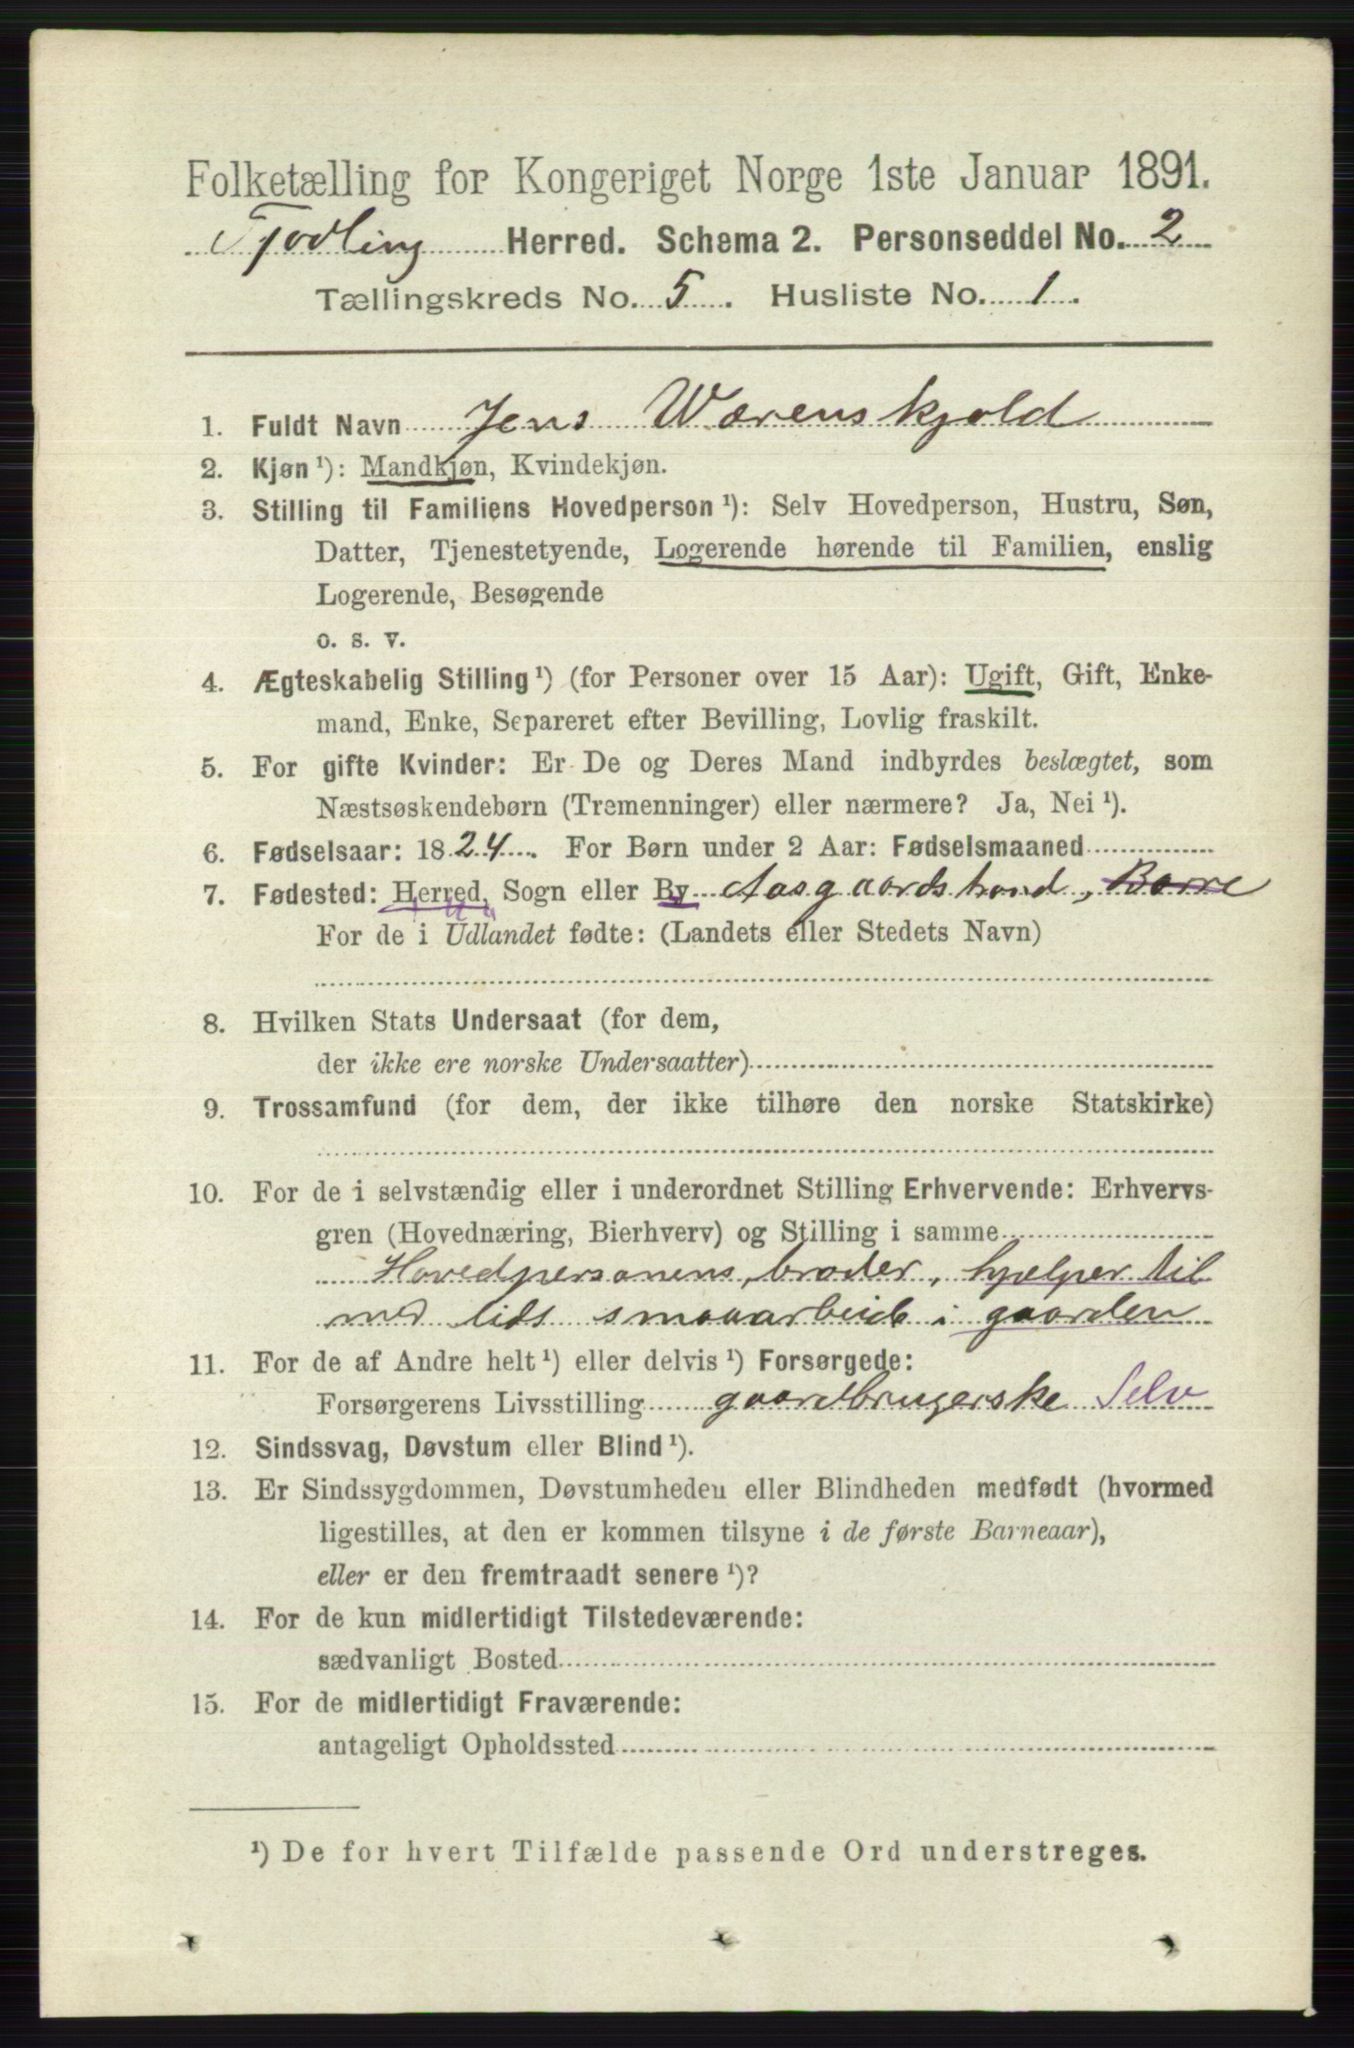 Folketælling for Kongeriget Norge 1ste Januar 1891.
Tjødling Herred. Schema 2. Personseddel No. 2
Tællingskreds No. 5. Husliste No. 1.
1. Fuldt Navn Jens Wærenskjold
2. Kjøn ¹): Mandkjøn, Kvindekjøn.
3. Stilling til Familiens Hovedperson ¹): Selv Hovedperson, Hustru, Søn,
Datter, Tjenestetyende, Logerende hørende til Familien, enslig
Logerende, Besøgende
o. s. v.
4. Ægteskabelig Stilling ¹) (for Personer over 15 Aar): Ugift, Gift, Enke-
mand, Enke, Separeret efter Bevilling, Lovlig fraskilt.
5. For gifte Kvinder: Er De og Deres Mand indbyrdes beslægtet, som
Næstsøskendebørn (Tremenninger) eller nærmere? Ja, Nei ¹).
6. Fødselsaar: 1824. For Børn under 2 Aar: Fødselsmaaned
7. Fødested: Herred, Sogn eller By Aasgaardstrand, Borre
For de i Udlandet fødte: (Landets eller Stedets Navn)
8. Hvilken Stats Undersaat (for dem,
der ikke ere norske Undersaatter)
9. Trossamfund (for dem, der ikke tilhøre den norske Statskirke)
10. For de i selvstændig eller i underordnet Stilling Erhvervende: Erhvervs-
gren (Hovednæring, Bierhverv) og Stilling i samme
Hovedpersonens broder, hjælper til
med lidt smaaarbeide i gaarden
11. For de af Andre helt ¹) eller delvis ¹) Forsørgede:
Forsørgerens Livsstilling gaardbrugerske Selv
12. Sindssvag, Døvstum eller Blind ¹).
13. Er Sindssygdommen, Døvstumheden eller Blindheden medfødt (hvormed
ligestilles, at den er kommen tilsyne i de første Barneaar),
eller er den fremtraadt senere ¹)?
14. For de kun midlertidigt Tilstedeværende:
sædvanligt Bosted
15. For de midlertidigt Fraværende:
antageligt Opholdssted
¹) De for hvert Tilfælde passende Ord understreges.